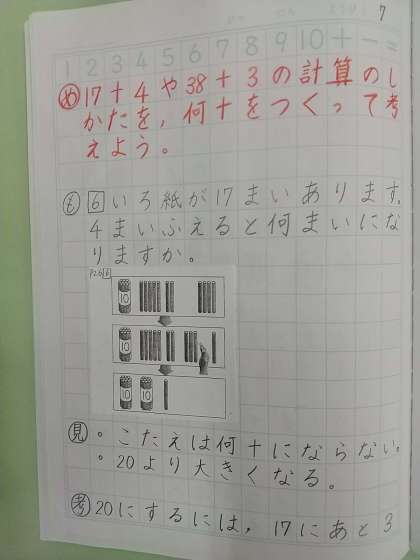 7
1 2 3 4 5 6 7 8 9 10 + − =
め 17+4や38+3の計算のし
かたを,何十をつくって考
えよう。
も 6 いろ紙が17まいあります。
4まいふえると何まいにな
りますか。
10
10
10 10
見 ・こたえは何十にならない。
・20より大きくなる。
考 20にするには,17にあと3